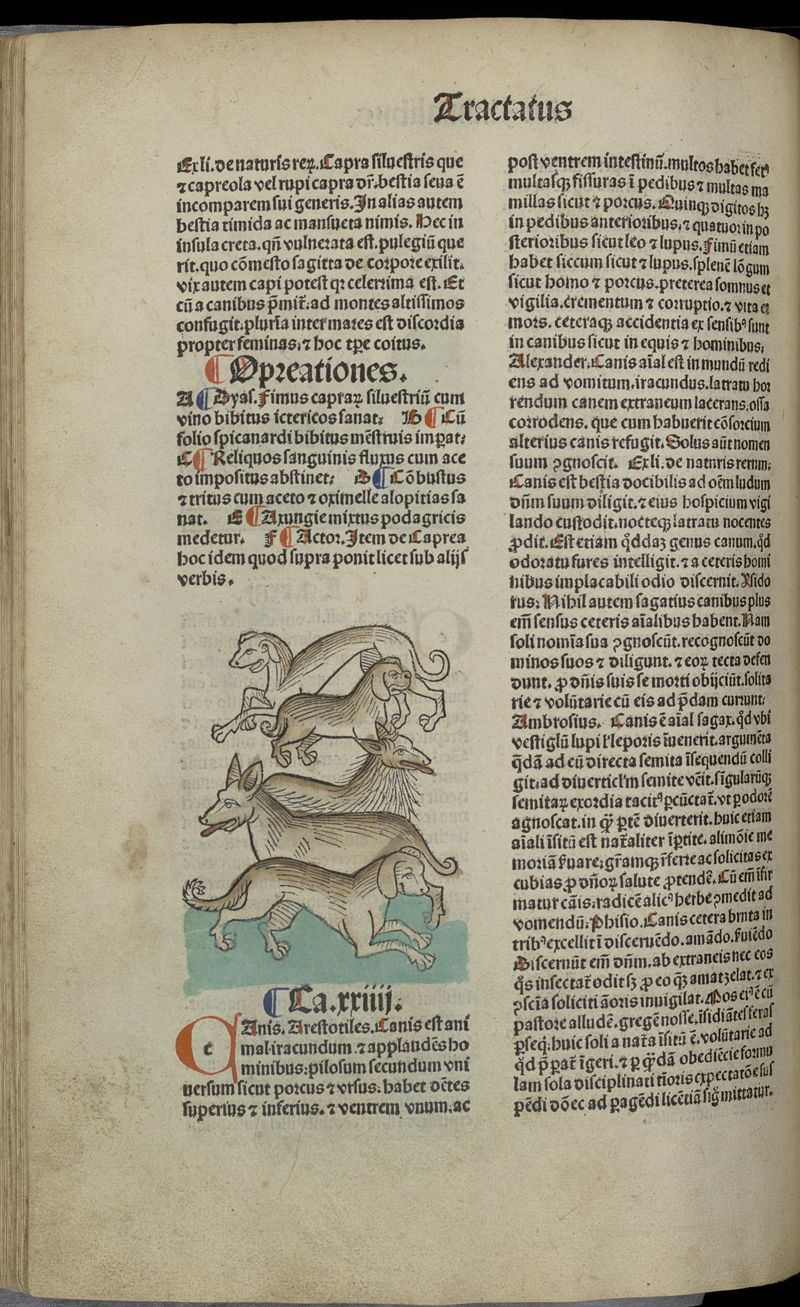 Tractatus
Ex li. de naturis reꝝ. Capra silvestris que
⁊ capreola vel rupicapra dr̄. bestia seua ē
incomparem sui generis. In alias autem
bestia timida ac mansueta nimis. Hec in
insula creta. qn̄ vulnerata est. pulegiū que
rit. quo cōmesto sagitta de corpore exilit.
vix autem capi potest qꝛ celerrima est. Et
cū a canibus p̄mit᷑. ad montes altissimos
confugit. plurīa inter mares est discordia
propter feminas. ⁊ hoc tꝑe coitus.
¶ Opreationes.
A ¶ Dyas. Fimus capraꝝ silvestriū cum
vino bibitus ictericos sanat. B ¶ Cū
folio spicanardi bibitus mēstruis imꝑat.
C ¶ Reliquos sanguinis fluxus cum ace
to impositus abstinet. D ¶ Cōbustus
⁊ tritus cum aceto ⁊ oximelle alopitias sa
nat. E ¶ Axungie mixtus podagricis
medetur. F ¶ Actor. Item de Caprea
hoc idem quod supra ponit licet sub alijs
verbis.
¶ Ca. xxiiij.
CAnis. Arestotiles. Canis est ani
mal iracundum. ⁊ applaudēs ho
minibus: pilosum secundum vni
uersum sicut porcus ⁊ vrsus. habet dētes
superius ⁊ inferius. ⁊ ventrem vnum. ac
post ventrem intestinū. multos habet
multasqꝫ fissuras ī pedibus ⁊ multas ma
millas sicut ⁊ porcus. Quinqꝫ digitos hꝫ
in pedibus anterioribus. ⁊ quatuor in po
sterioribus sicut leo ⁊ lupus. Fimū etiam
habet siccum sicut ⁊ lupus. splenē lōgum
sicut homo ⁊ porcus. preterea somnus et
vigilia. crementum ⁊ corruptio. ⁊ vita et
mors. ceteraqꝫ accidentia ex sensibꝰ sunt
in canibus sicut in equis ⁊ hominibus.
Alexander. Canis aīal est in mundū redi
ens ad vomitum. iracundus. latratu hor
rendum canem extraneum lacerans. ossa
corrodens. que cum habuerit cōsorcium
alterius canis refugit. Solus aūt nomen
suum ꝯgnoscit. Ex li. de naturis rerum.
Canis est bestia docibilis ad oēm ludum
dn̄m suum diligit. ⁊ eius hospicium vigi
lando custodit. nocteqꝫ latratu nocentes
ꝓdit. Est etiam q̄ddaꝫ genus canum. qd̄
odoratu fures intelligit. ⁊ a ceteris homi
nibus implacabili odio discernit. Ysido
rus. Nihil autem sagatius canibus plus
em̄ sensus ceteris aīalibus habent. Nam
soli nomīa sua ꝯgnoscūt. recognoscūt do
minos suos ⁊ diligunt. ⁊ eoꝝ tecta defen
dunt. ꝓ dn̄is suis se morti obijciūt. solita
rie ⁊ volūtarie cū eis ad p̄dam currunt.
Ambrosius. Canis ē aīal sagax. qd̄ vbi
vestigiū lupi ł leporis īuenerit. argumēta
q̄dā ad eū directa semita īsequendū colli
git. ad diuerticłm semite vēit. sīgularūqꝫ
semitaꝝ exordia tacitꝰ ꝑcūctat᷑. vt ꝑ odorē
agnoscat. in q̄ ꝑtē diuerterit. huic etiam
aīali īsitū est nat᷑aliter īꝑtite. alimōie me
moriā seruare. gr̄amqꝫ referre ac solicitas ex
cubias ꝓ dn̄oꝝ salute ꝓtendē. Cū em̄
matur cāis. radicē alicꝰ herbe ꝯmedit ad
vomendū. Phisio. Canis cetera bruta in
tribꝰ excellit ī discernēdo. amādo. seruiēdo
Discernūt em̄ dn̄m. ab extraneis nec eos
q̄s insectat᷑ odit sꝫ ꝓ eo qꝫ amat ꝫelat. ⁊ ex
ꝯscīa soliciti āoris inuigilat. Mos eiꝰ ē cū
pastore alludē. gregē nosse. īsidiātes feras
ꝑseq̄. huic soli a nat᷑a īsitū ē. volūtarie ad
qd̄ p̄ꝑat᷑ īgeri. ⁊ ꝑ q̄ndā obediēcie formu
lam sola disciplinati timoris expectatōe sus
pēdi dōec ad ꝑagēdi licētiā signi mittatur.